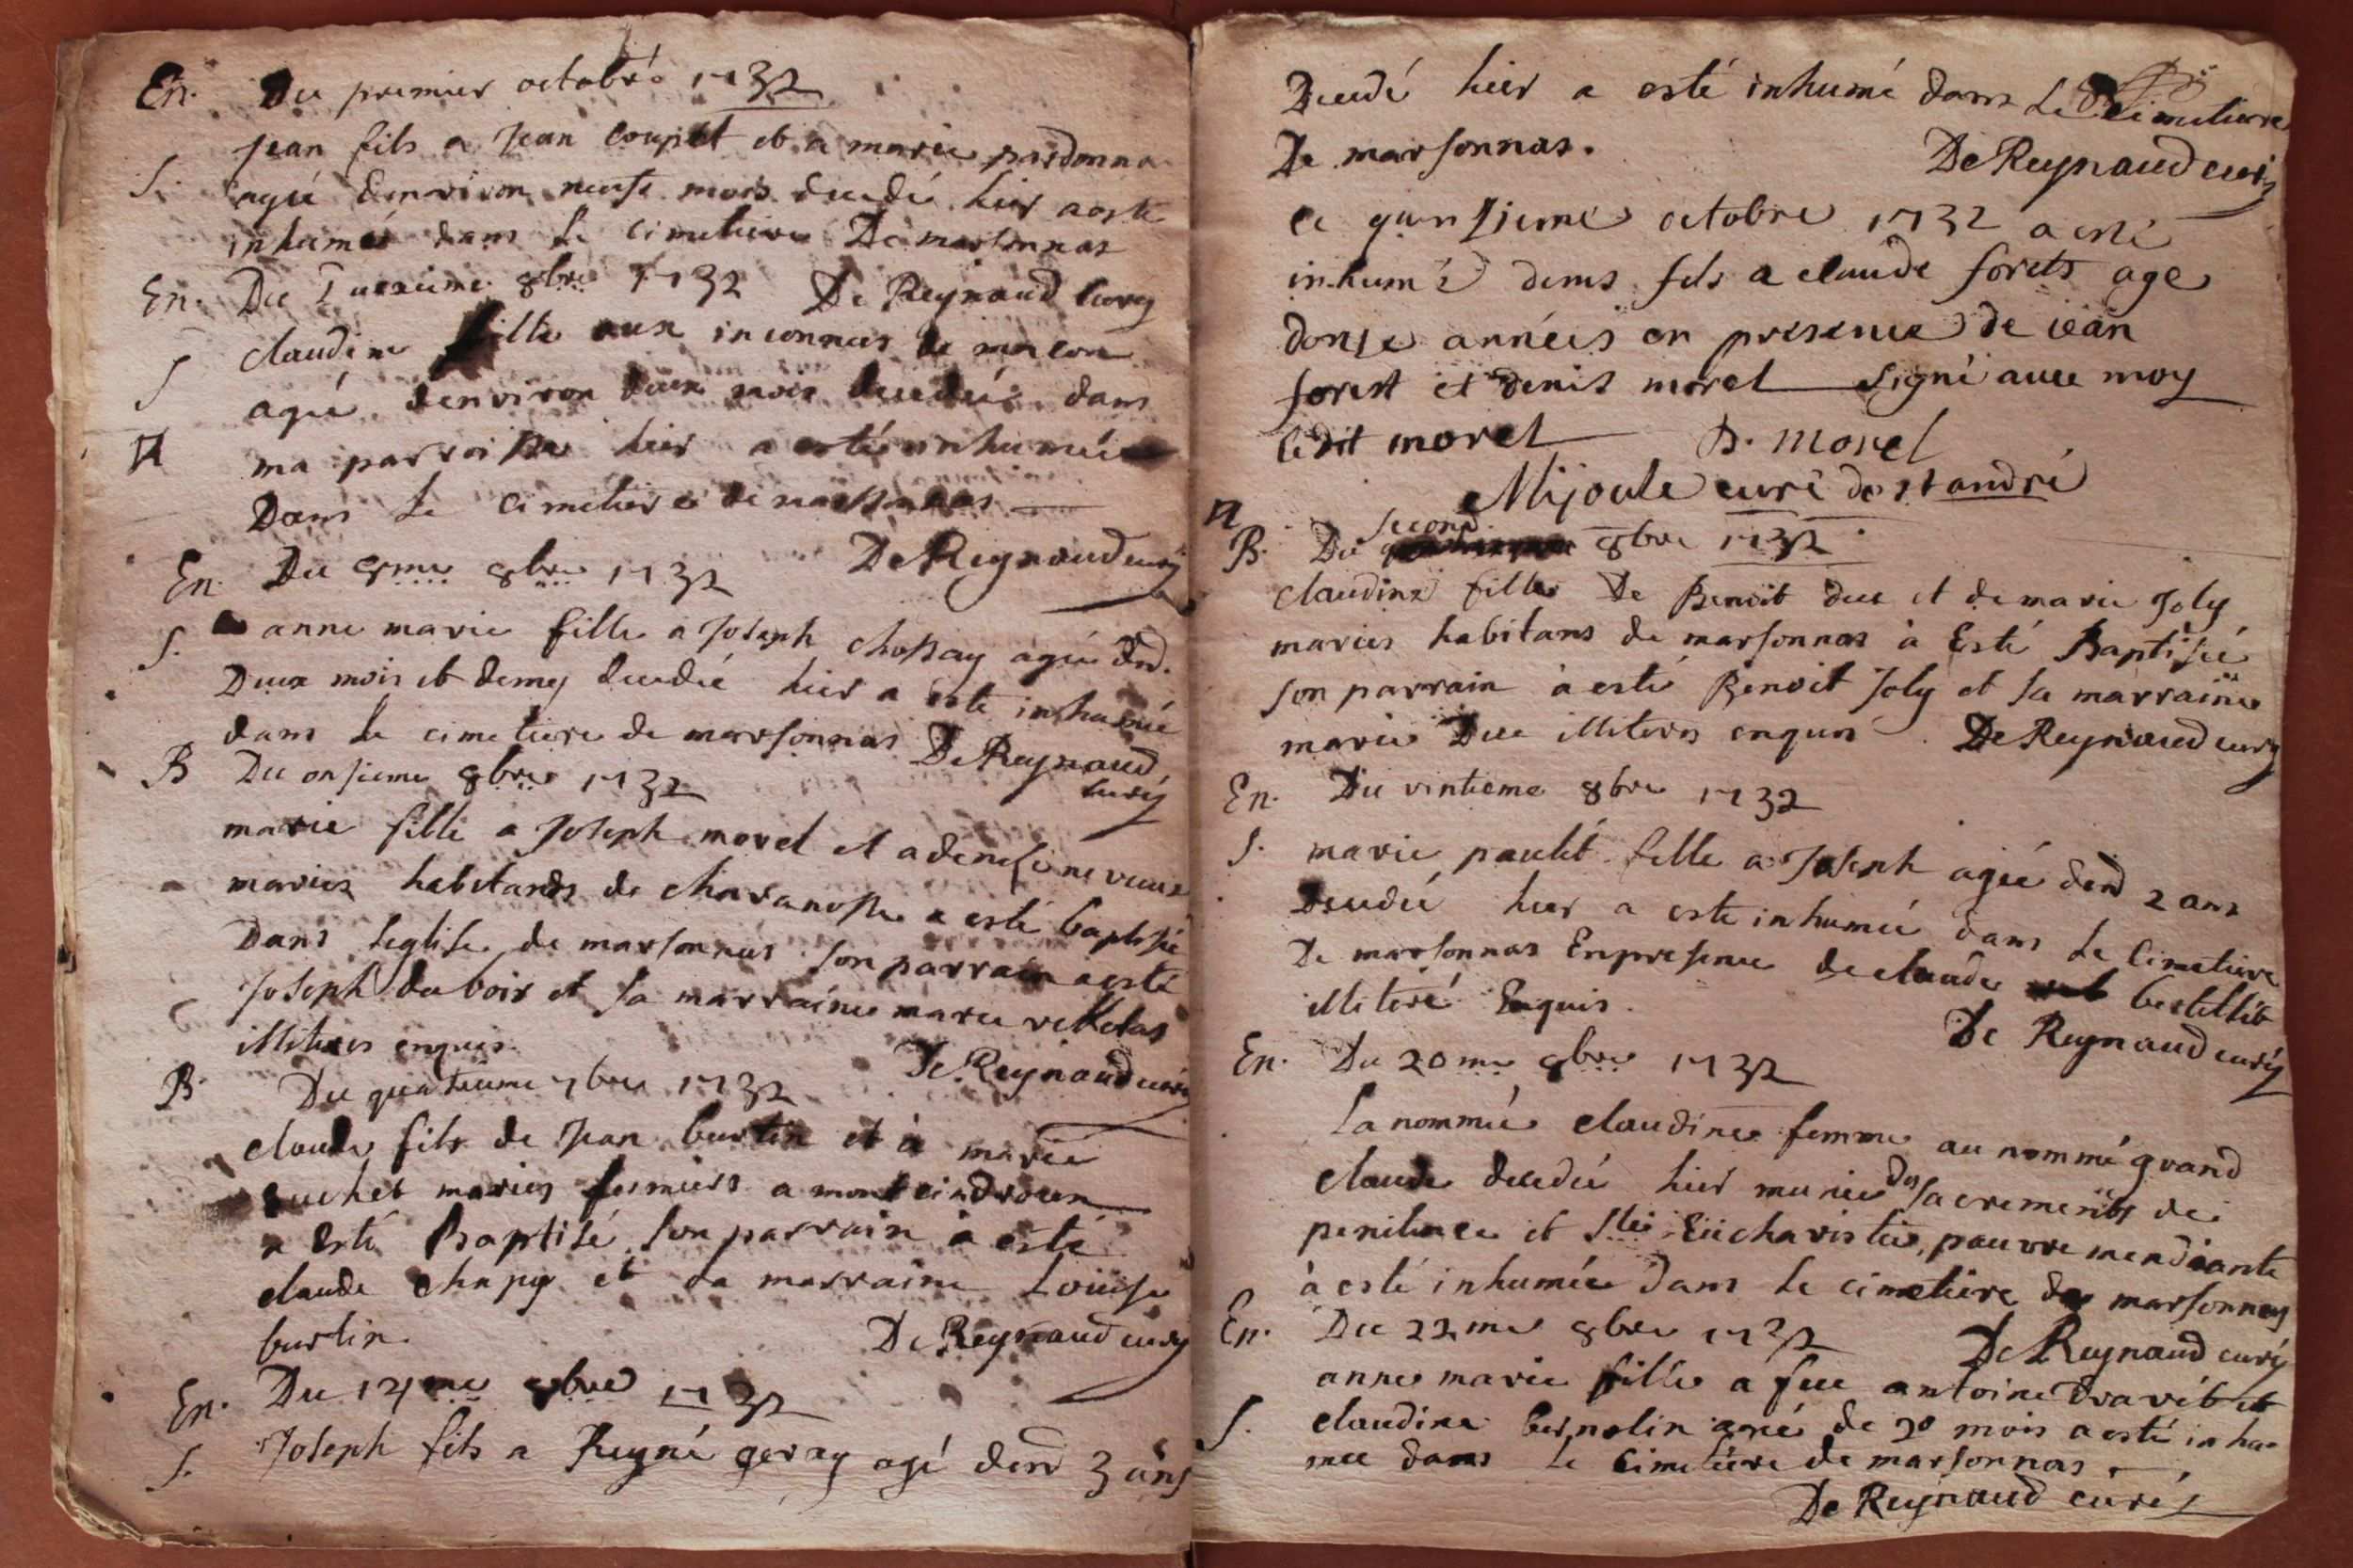 En. Du premier octobre 1732
jean fils a jean coupet et a marie pardonna
S. agié denviron neufs mois decedé hier a esté
inhumé dans le cimetiere De marsonnas
En. Du 8bre 1732 De Reynaud curéy
S claudine fille aux inconnus de macon
agié denviron deux mois decedeé dans
H ma parroisse hier a esté inhumeé
Dans le cimetiere de marsonnas
En. Du 9me 8bre 1732 De Reynaud curéy
S. anne marie fille a Joseph chossay agié dnd.
Deux mois et demy decedeé hier a esté inhumé
dans le cimetiere de marsonnas De Reynaud
curéy
B Du onsieme 8bre 1732
marie fille a Joseph morel et a denise
maries habitands de chavanosse a esté baptisée
Dans leglise de marsonnas son parrain a esté
Joseph dubois et sa marraine marie
illiteres enquis. De Reynaud curéy
B. Du quatrieme 7bre 1732
claude fils de jean burtin et à marie
buchet maries fermiers a montcindroux
a Esté Baptisé son parrain à esté
claude chapy et sa marraine Louise
burtin. De Reynaud curéy
En. Du 14me 8bre 1732
S. Joseph fils a Reyné geray agé dend 3 ans
Decedé hier a esté inhumé dans Le Cimetiere
De marsonnas. De Reynaud curéy
ce quinsieme octobre 1732 a esté
inhumé denis fils a claude forets age
donse annéés en presence de iean
forest et denis morel signé avec moy
ledit morel D. Morel
Mijoule curé de st andré
H
second
B. Du 8bre 1732
claudine fille De Benoit duc et de marie Joly
maries habitans de marsonnas à Esté Baptisée
son parrain à esté Benoit Joly et sa marraine
marie Duc illiteres enquis De Reynaud curéy
En. Du vintieme 8bre 1732
S. marie paulet fille a Joseph agié dend 2 ans
Decedeé hier a esté inhumeé dans le Cimetiere
De marsonnas Enpresence de claude bertillit
illiteré Enquis. De Reynaud curéy
En. Du 20me 8bre 1732
La nommeé claudine femme au nommé grand
claude decedeé hier munie des sacrements de
penitence et Ste Eucharistie, pauvre mendiante
à esté inhumée dans le cimetiere de marsonnas
En. Du 22me 8bre 1732 De Reynaud curéy
anne marie fille a feu antoine dravet et
S. claudine bernolin agé de 30 mois a esté inhu-
mee dans le Cimetiere de marsonnas.
De Reynaud curéy